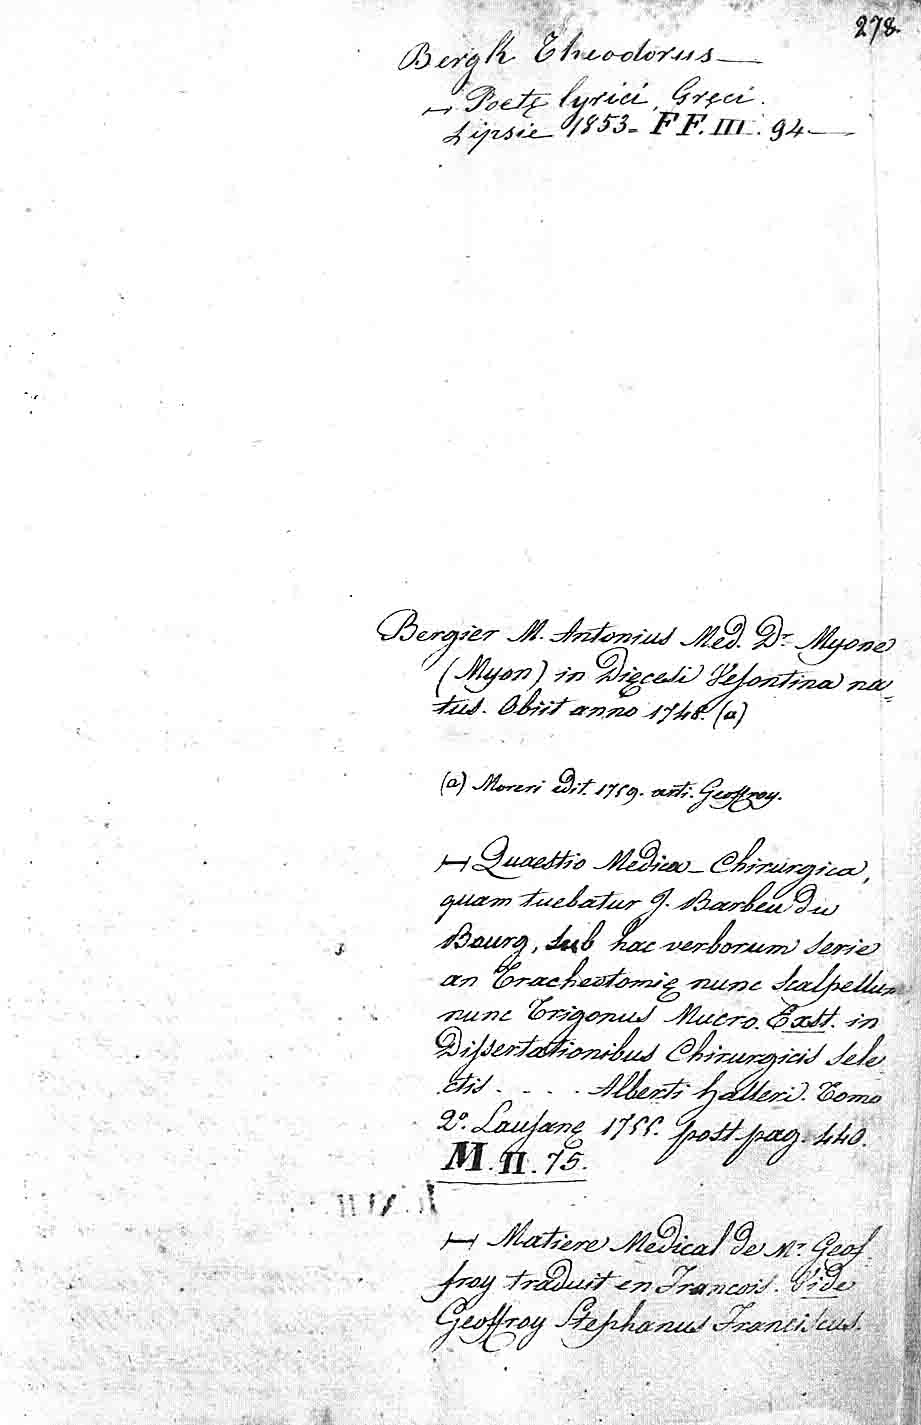 278.
Bergk Theodorus —
⊢ Poetę lyrici Gręci.
Lipsie 1853. FF. III. 94 —
Bergier M. Antonius Med. Dr. Myone
(Myon) in Dięcesi Vesontina na=
tus. Obiit anno 1748. (a)
(a) Moreri edit. 1759. arti. Geoffroy.
⊢ Quaestio Medica-Chirurgica,
quam tuebatur J. Barbeu du
Bourg, sub hac verborum serie
an Tracheotomię nunc scalpellum
nunc Trigonus Mucro. Exst. in
Dissertationibus Chirurgicis sele
ctis . . . . Alberti Halleri. Tomo
2º. Lausanę 1755. post pag. 440.
M. II. 75.
⊢ Matiere Medical de Mr. Geof
froy traduit en Francois. Vide
Geoffroy Stephanus Franciscus.